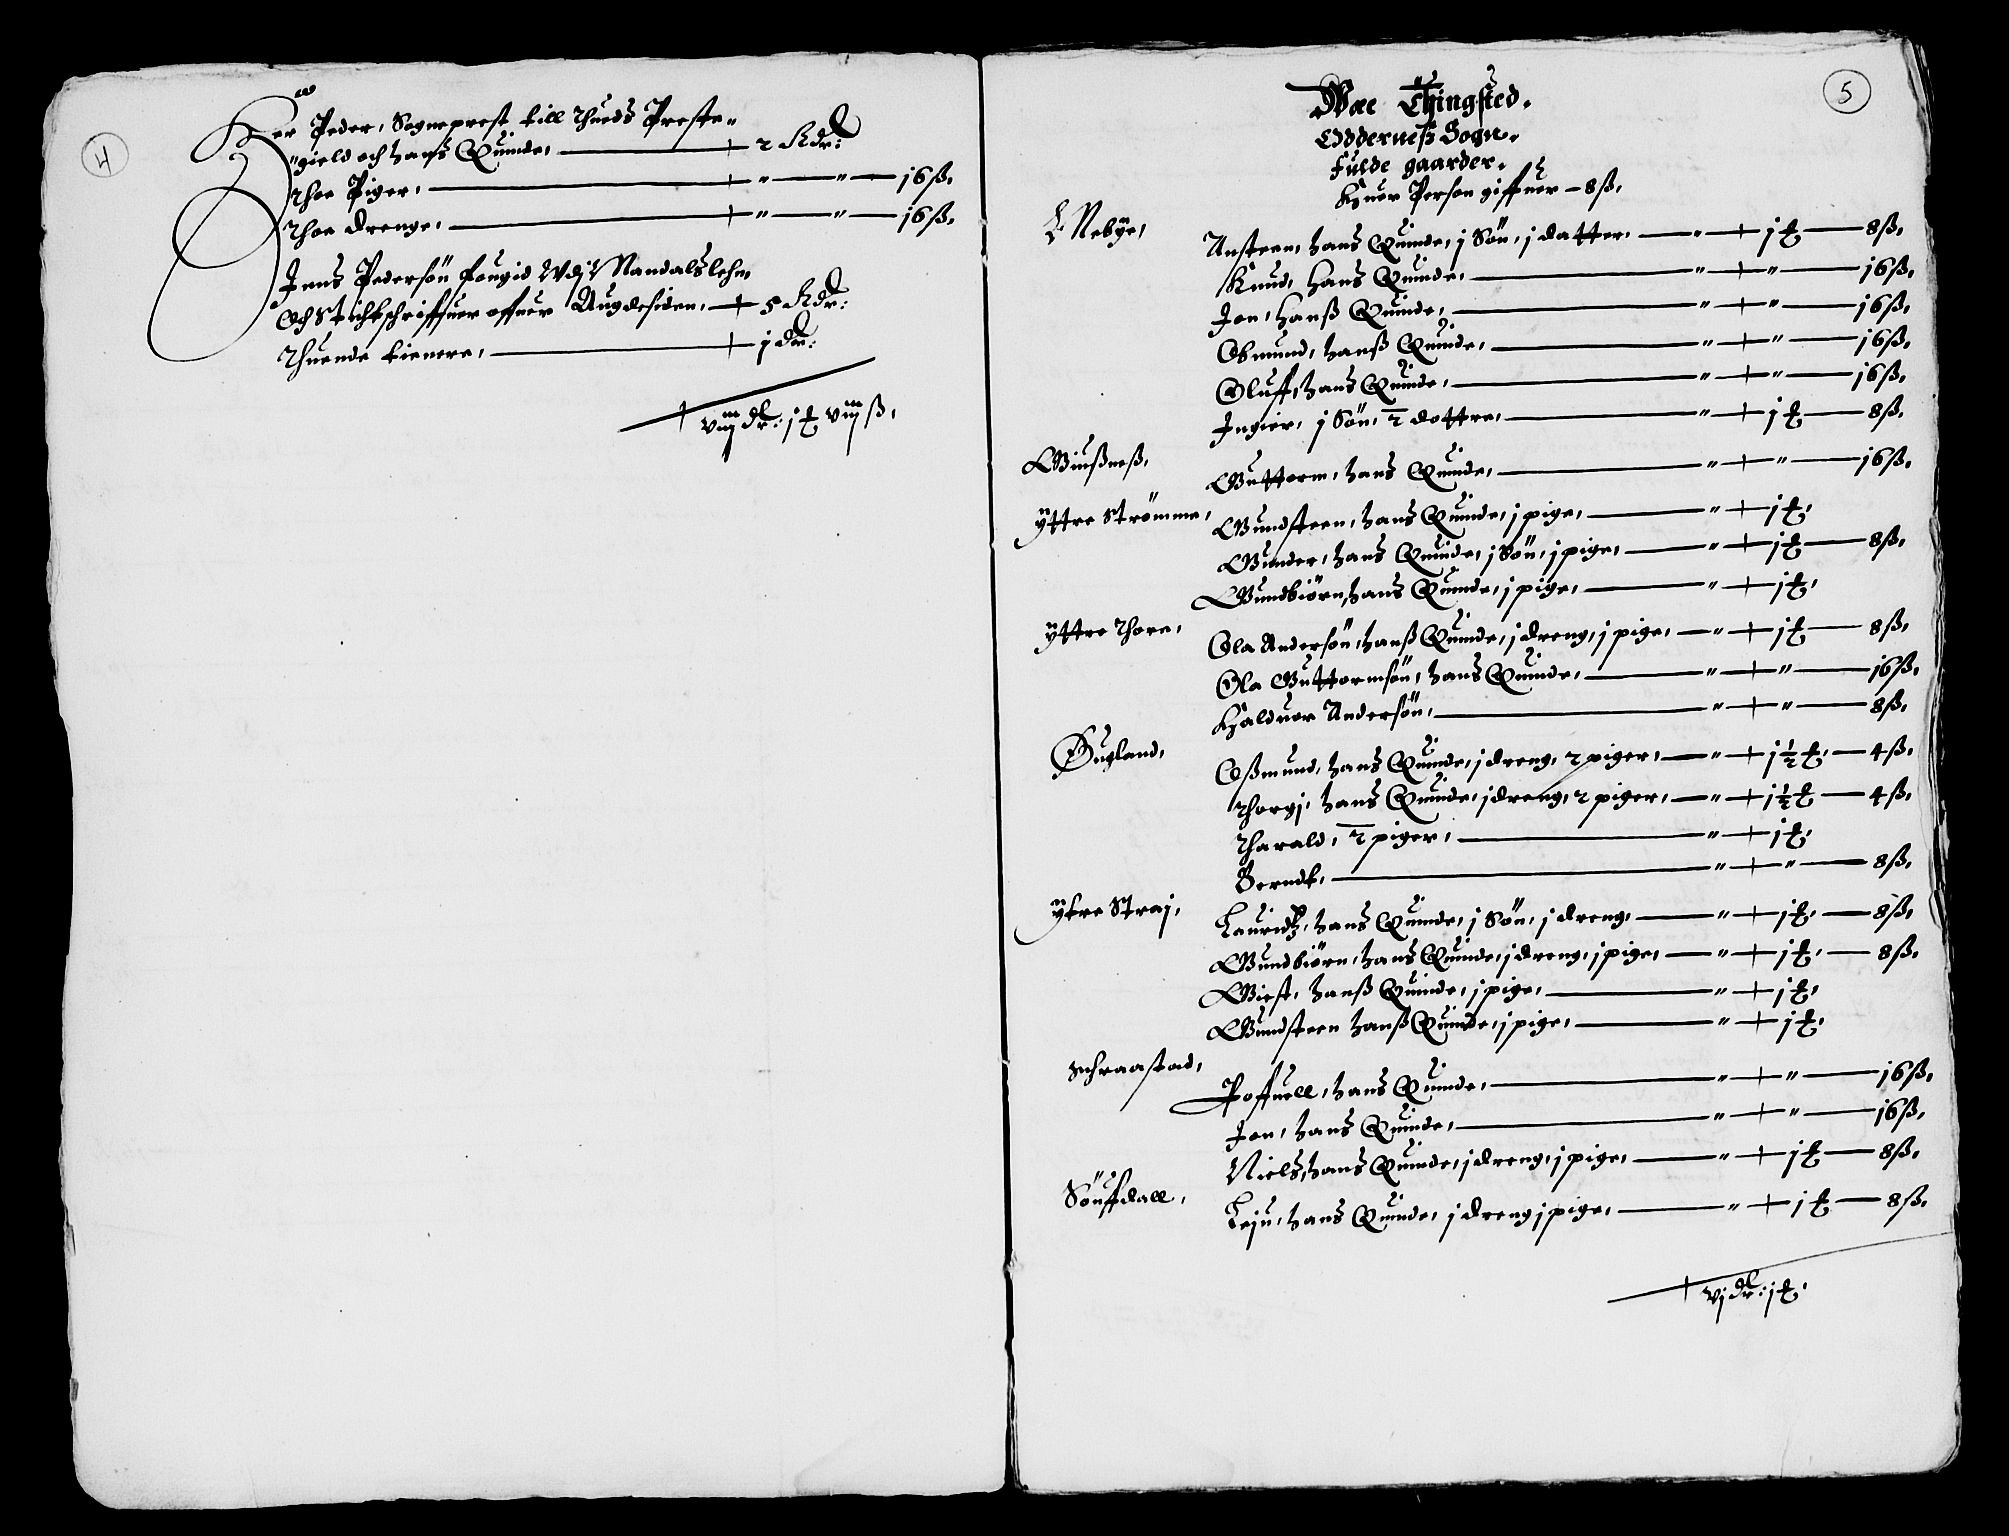 4
Her Peder, Sogneprest till Thueds Preste-
gield och hans Quinde, 2 Rdr:
Thoe Piger, " " 16 ß,
Thoe drenge, " " 16 ß,
Jens Pedersön fougid Vdj Mandals lehn,
Och Stichtschriffuer offuer Augdesiden, 5 Rdr:
Thuende tienere, j dr:
viij dr: j ℔ viij ß,
5
Wæe Thingsted.
Odderneß Sogn.
Fulde gaarder.
Huer Person giffuer - 8 ß,
Nebÿe,
Ansteen, hans Quinde, j Sön, j datter, " j ℔ 8 ß,
Knud, Hans Quinde, " " 16 ß,
Jon, hanß Quinde, " " 16 ß,
Obmund, hanß Quinde, " " 16 ß,
Oluff, hans Quinde, " " 16 ß,
Ingier, j Sön, 2 dottre, " j ℔ 8 ß,
Giußneß,
Guttorm, hans Quinde, " " 16 ß,
ÿttre Strömme,
Gundsteen, hans Quinde, j pige, " j ℔,
Gunder, hans Quinde, j Sön, j pige, " j ℔ 8 ß,
Gundbiörn, hans Quinde, j pige, " j ℔,
ÿttre Thore,
Ola Andersön, hanß Quinde, j dreng, j pige, " j ℔ 8 ß,
Ola Guttormsön, hans Quinde, " " 16 ß,
Halduor Andersön, " " 8 ß,
Øugland,
Oßmund, hans Quinde, j dreng, 2 piger, " j ½ ℔, 4 ß,
Thorgj, hans Quinde, j dreng, 2 piger, " j ½ ℔ 4 ß,
Tharald, 2 piger, " j ℔,
Berndt, " " 8 ß,
ÿtre Straj,
Lauridtz, hans Quinde, j Sön, j dreng, " j ℔, 8 ß,
Gundbiörn, hans Quinde, j dreng, j pige, " j ℔, 8 ß,
Giest, hanß Quinde, j pige, " j ℔,
Gundsteen hanß Quinde, j pige, " j ℔,
Schraastad,
Poffuell, hans Quinde, " " 16 ß,
Jon, hans Quinde, " " 16 ß,
Niels, hans Quinde, j dreng, j pige, " j ℔ 8 ß,
Söuffdall,
Leju, hans Quinde, j dreng j pige, " j ℔ 8 ß,
vj dr: j ℔,